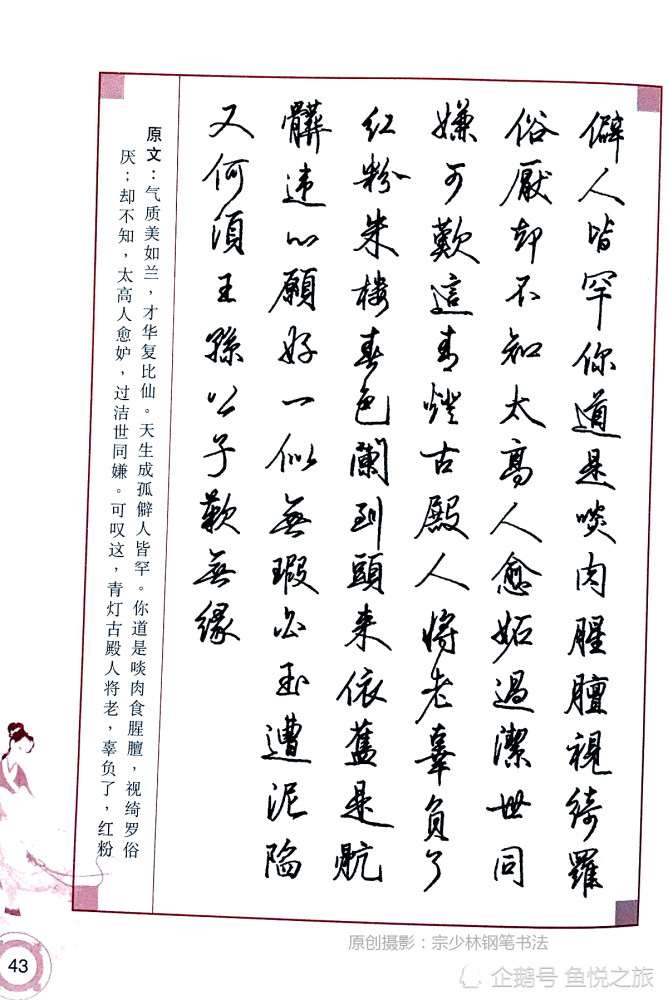 僻人皆罕你道是啖肉腥膻視綺羅
俗厭却不知太高人愈妬過潔世同
嫌可歎這青燈古殿人將老辜負了
紅粉朱樓春色闌到頭来依舊是骯
髒违心願好一似無瑕白玉遭泥陷
又何須王孫公子歎無緣
原文：气质美如兰，才华复比仙。天生成孤僻人皆罕。你道是啖肉食腥膻，视绮罗俗
厌；却不知，太高人愈妒，过洁世同嫌。可叹这，青灯古殿人将老，辜负了，红粉
原创摄影：宗少林钢笔书法
43
企鹅号 鱼悦之旅